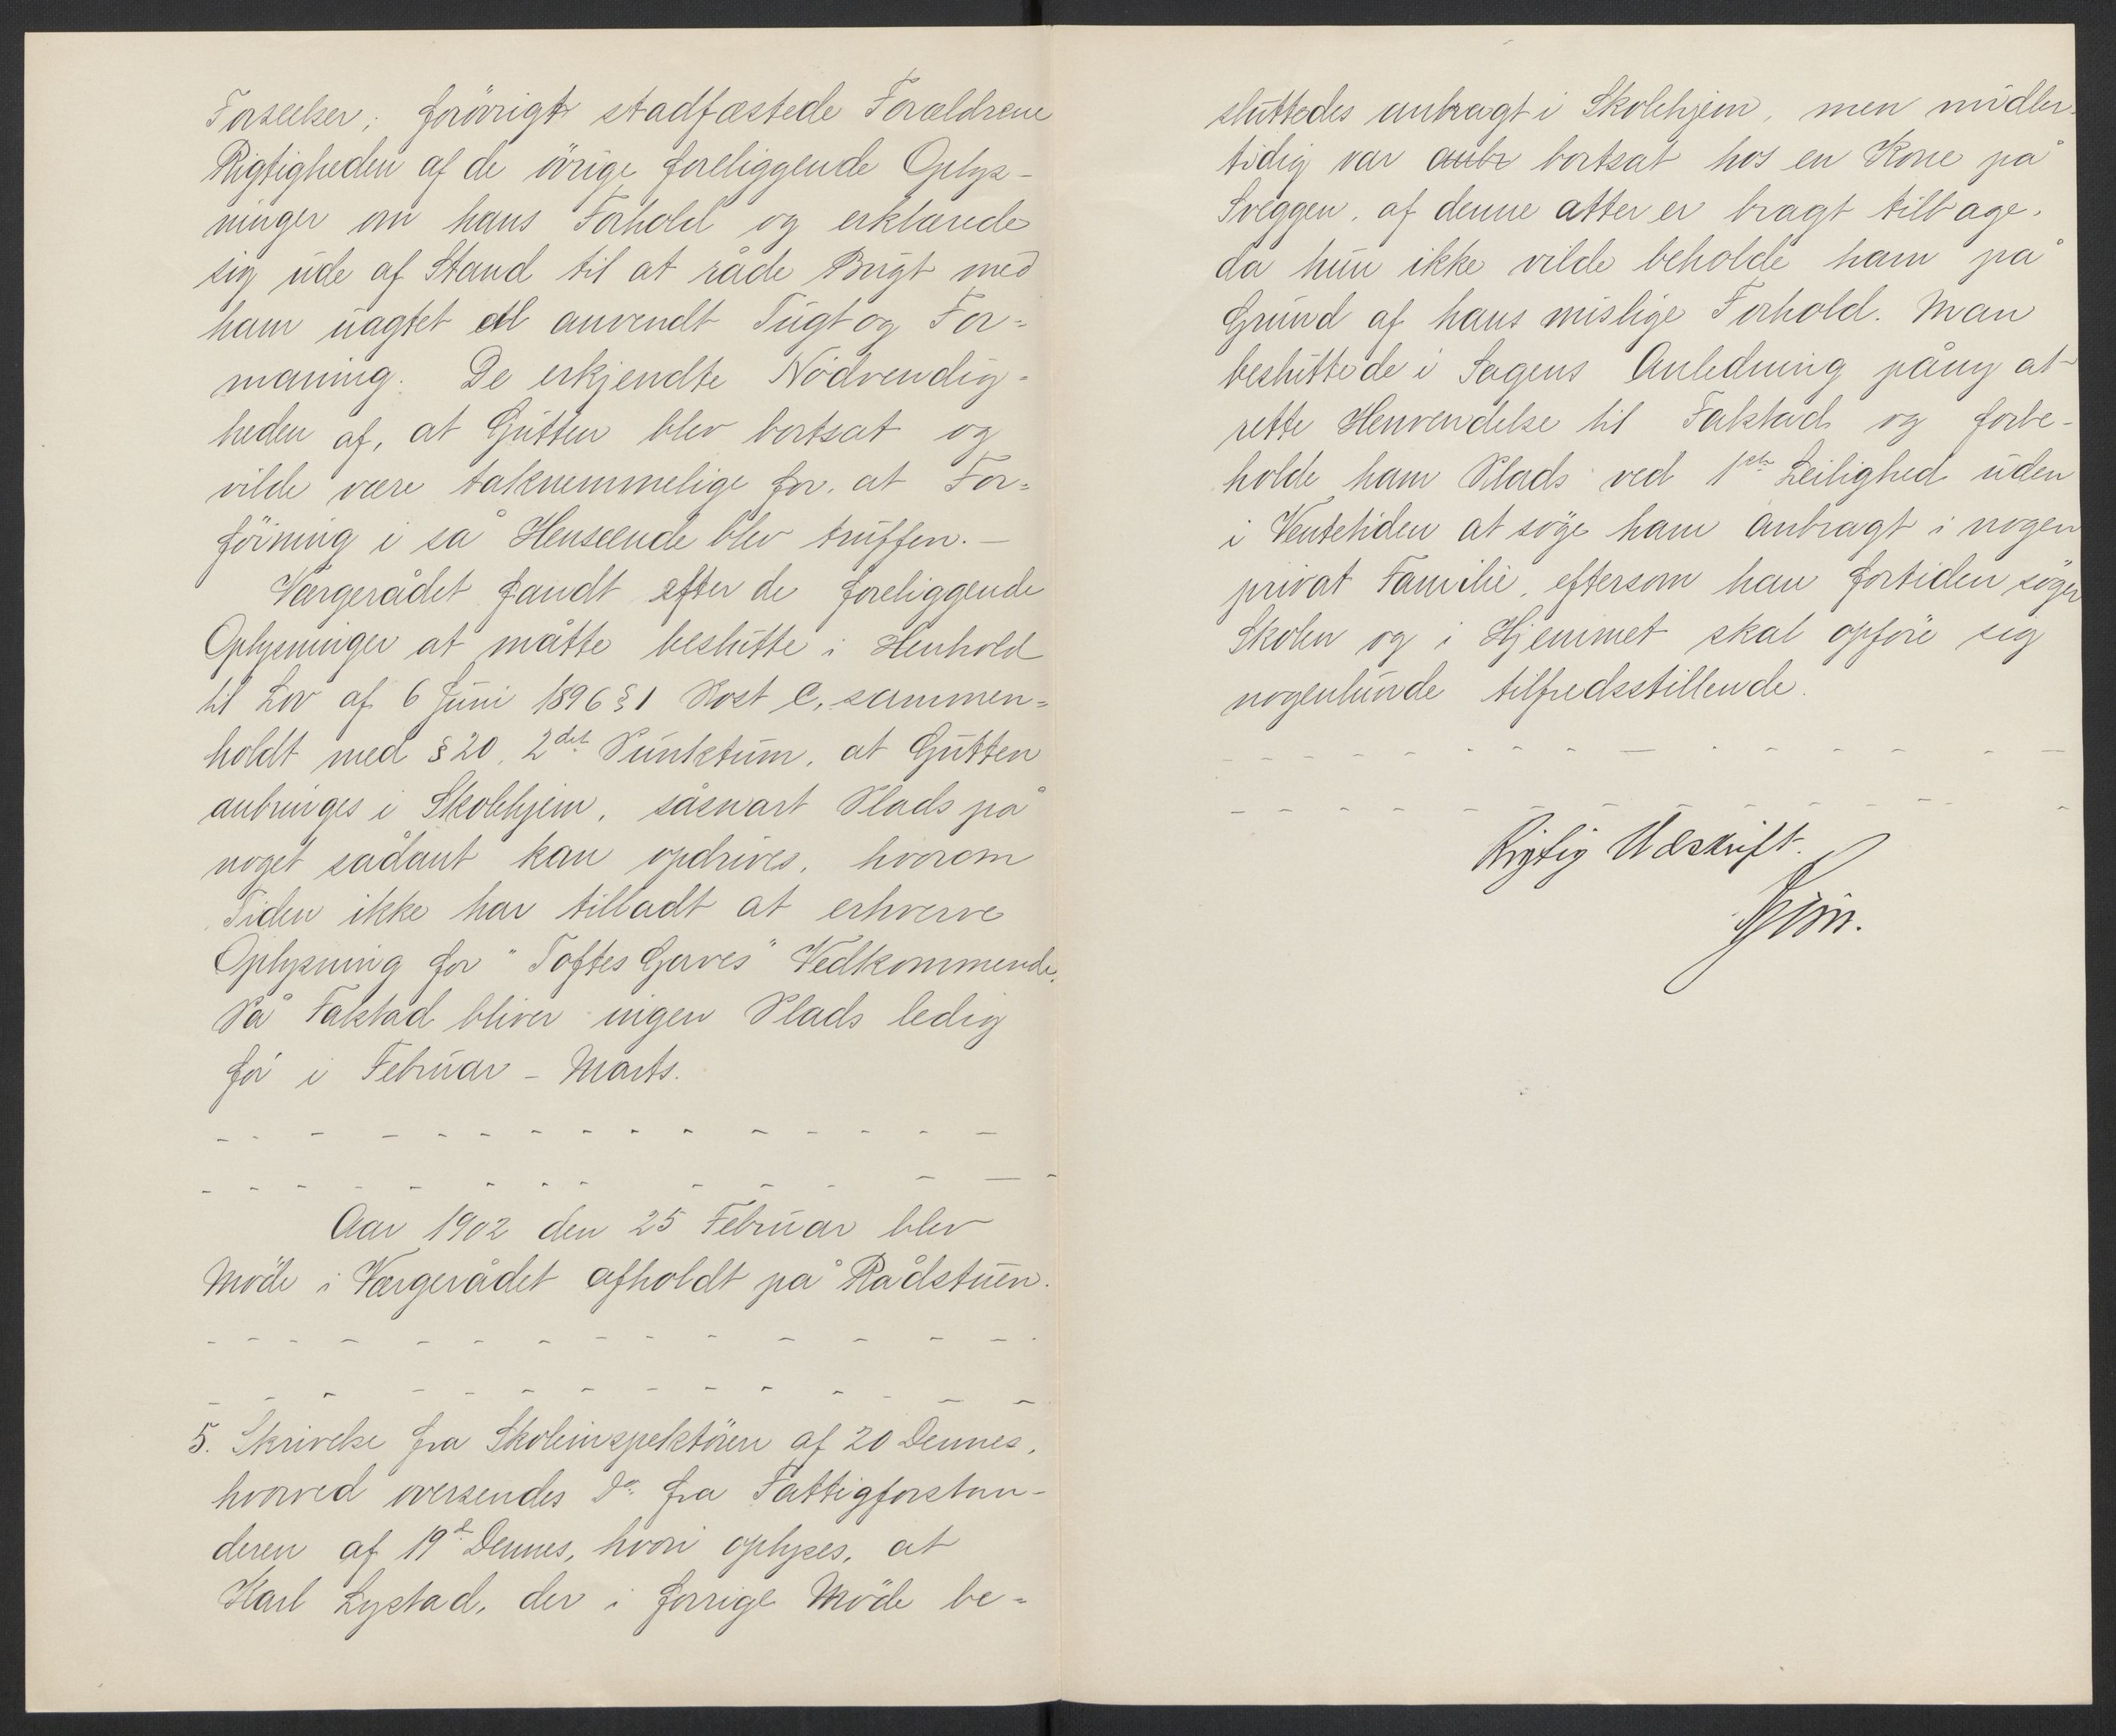 Forseelser; forövrigt stadfæstede Forældrene
Rigtigheden af de övrige foreliggende Oplys-
ninger om hans Forhold og erklærede
sig ude af Stand til at råde Bugt med
ham uagtet al anvendt Tugt og For-
maning. De erkjendte Nödvendig-
heden af, at Gutten blev bortsat og
vilde være taknemmelige for, at For-
föining i så Henseende blev truffen. –
Værgerådet fandt efter de foreliggende
Oplysninger at måtte beslutte i Henhold
til Lov af 6 Juni 1896 § 1 Post C, sammen-
holdt med § 20, 2det Punktum, at Gutten
anbringes i Skolehjem, såsnart Plads på
noget sådant kan opdrives, hvorom
Tiden ikke har tilladt at erhverve
Oplysning for "Toftes Gaves" Vedkommende.
På Falstad bliver ingen Plads ledig
för i Februar – Marts.
Aar 1902 den 25 Februar blev
Möde i Værgerådet afholdt på Rådstuen.
5. Skrivelse fra Skoleinspektören af 20 Dennes,
hvorved oversendes Do fra Fattigforstan-
deren af 19d Dennes, hvori oplyses, at
Karl Lystad, der i forrige Möde be-
sluttedes anbragt i Skolehjem, men midler-
tidig var anbr bortsat hos en Kone på
Sveggen, af denne atter er bragt tilbage,
da hun ikke vilde beholde ham på
Grund af hans mislige Forhold. Man
besluttede i Sagens Anledning påny at
rette Henvendelse til Falstad og forbe-
holde ham Plads ved 1ste Leilighed uden
i Ventetiden at söge ham anbragt i nogen
privat Familie, eftersom han fortiden söger
Skolen og i Hjemmet skal opföre sig
nogenlunde tilfredsstillende.
Rigtig Udskrift.